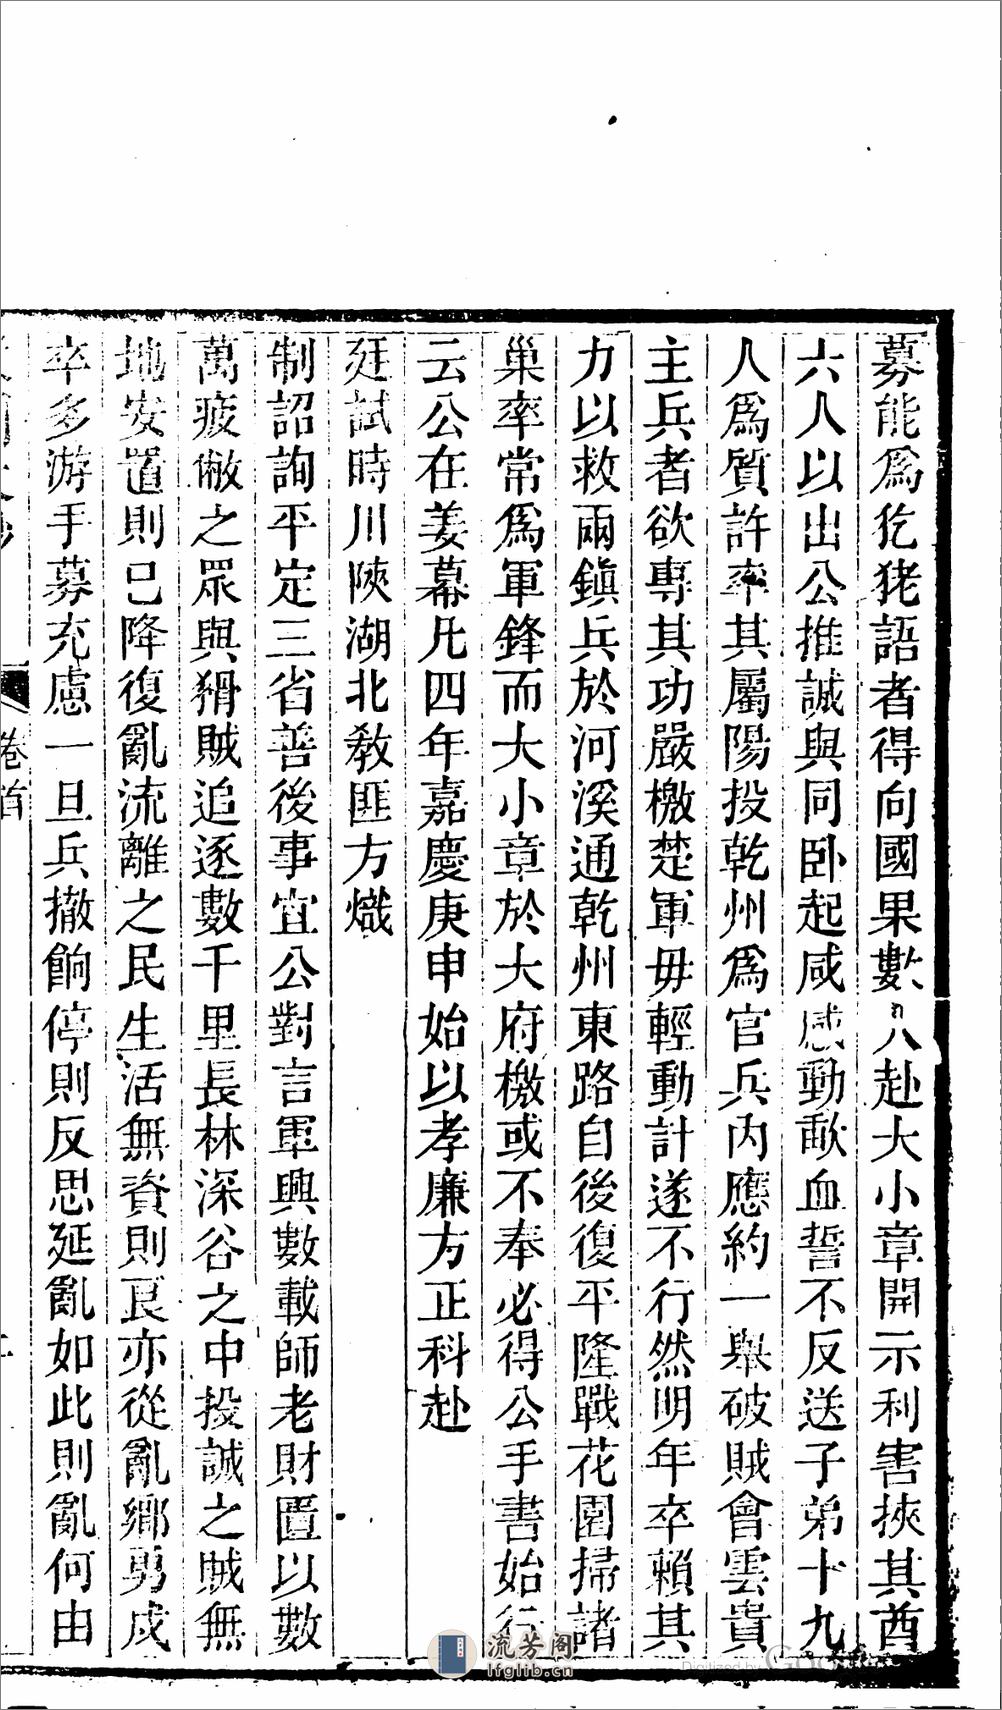 募能爲犵狫語者得向國果數八赴大小章開示利害挾其酋
六人以出公推誠與同卧起咸感動歃血誓不反送子弟十九
人爲質許率其屬陽投乾州爲官兵内應約一舉破賊會雲貴
主兵者欲專其功嚴檄楚軍毋輕動計遂不行然明年卒賴其
力以救兩鎭兵於河溪通乾州東路自後復平隆戰花園掃諸
巢率常爲軍鋒而大小章於大府檄或不奉必得公手書始行
云公在姜幕凡四年嘉慶庚申始以孝廉方正科赴
廷試時川陝湖北敎匪方熾
制詔詢平定三省善後事宜公對言軍興數載師老財匱以數
萬疲敝之眾與猾賊追逐數千里長林深谷之中投誠之賊無
地安置則已降復亂流離之民生活無資則良亦從亂鄉勇戍
卒多游手募充慮一旦兵撤餉停則反思延亂如此則亂何由
卷首
流芳阁
lfglib.cn
Digitized by